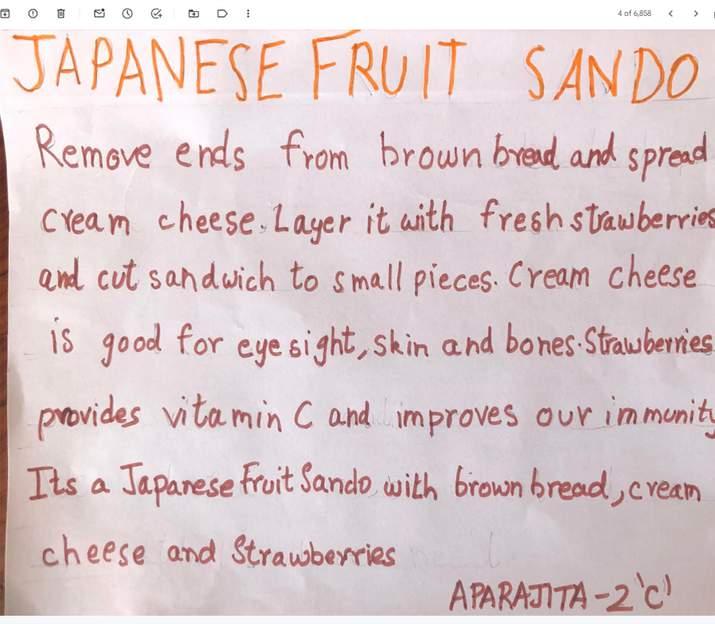 4 of 6,858
JAPANESE FRUIT SANDO
Remove ends from brown bread and spread
cream cheese. Layer it with fresh strawberries
and cut sandwich to small pieces. Cream cheese
is good for eye sight, skin and bones. Strawberries
provides vitamin C and improves our immunity
Its a Japanese Fruit Sando with brown bread, cream
cheese and Strawberries
APARAJITA - 2 'C'